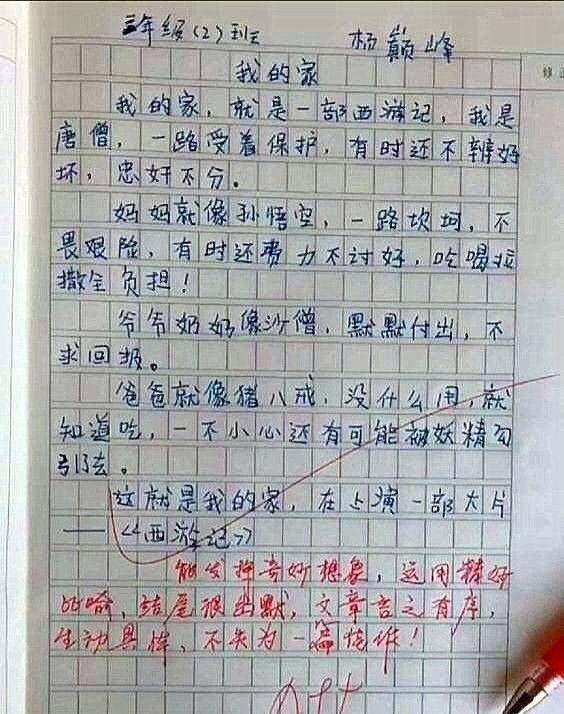 三年级(2)班 杨巅峰
修正
我的家
我的家，就是一部西游记，我是
唐僧，一路受着保护，有时还不辨好
坏，忠奸不分。
妈妈就像孙悟空，一路坎坷，不
畏艰险，有时还费力不讨好，吃喝拉
撒全负担！
爷爷奶奶像沙僧，默默付出，不
求回报。
爸爸就像猪八戒，没什么用，就
知道吃，一不小心还有可能被妖精勾
引去。
这就是我的家，在上演一部大片
——《西游记》
能发挥奇妙想象，运用精妙
比喻，结尾很幽默，文章言之有序，
生动具体，不失为一篇佳作！
A++